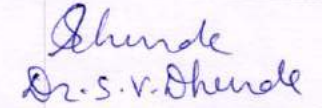 Dhende
Dr. S. V. Dhende